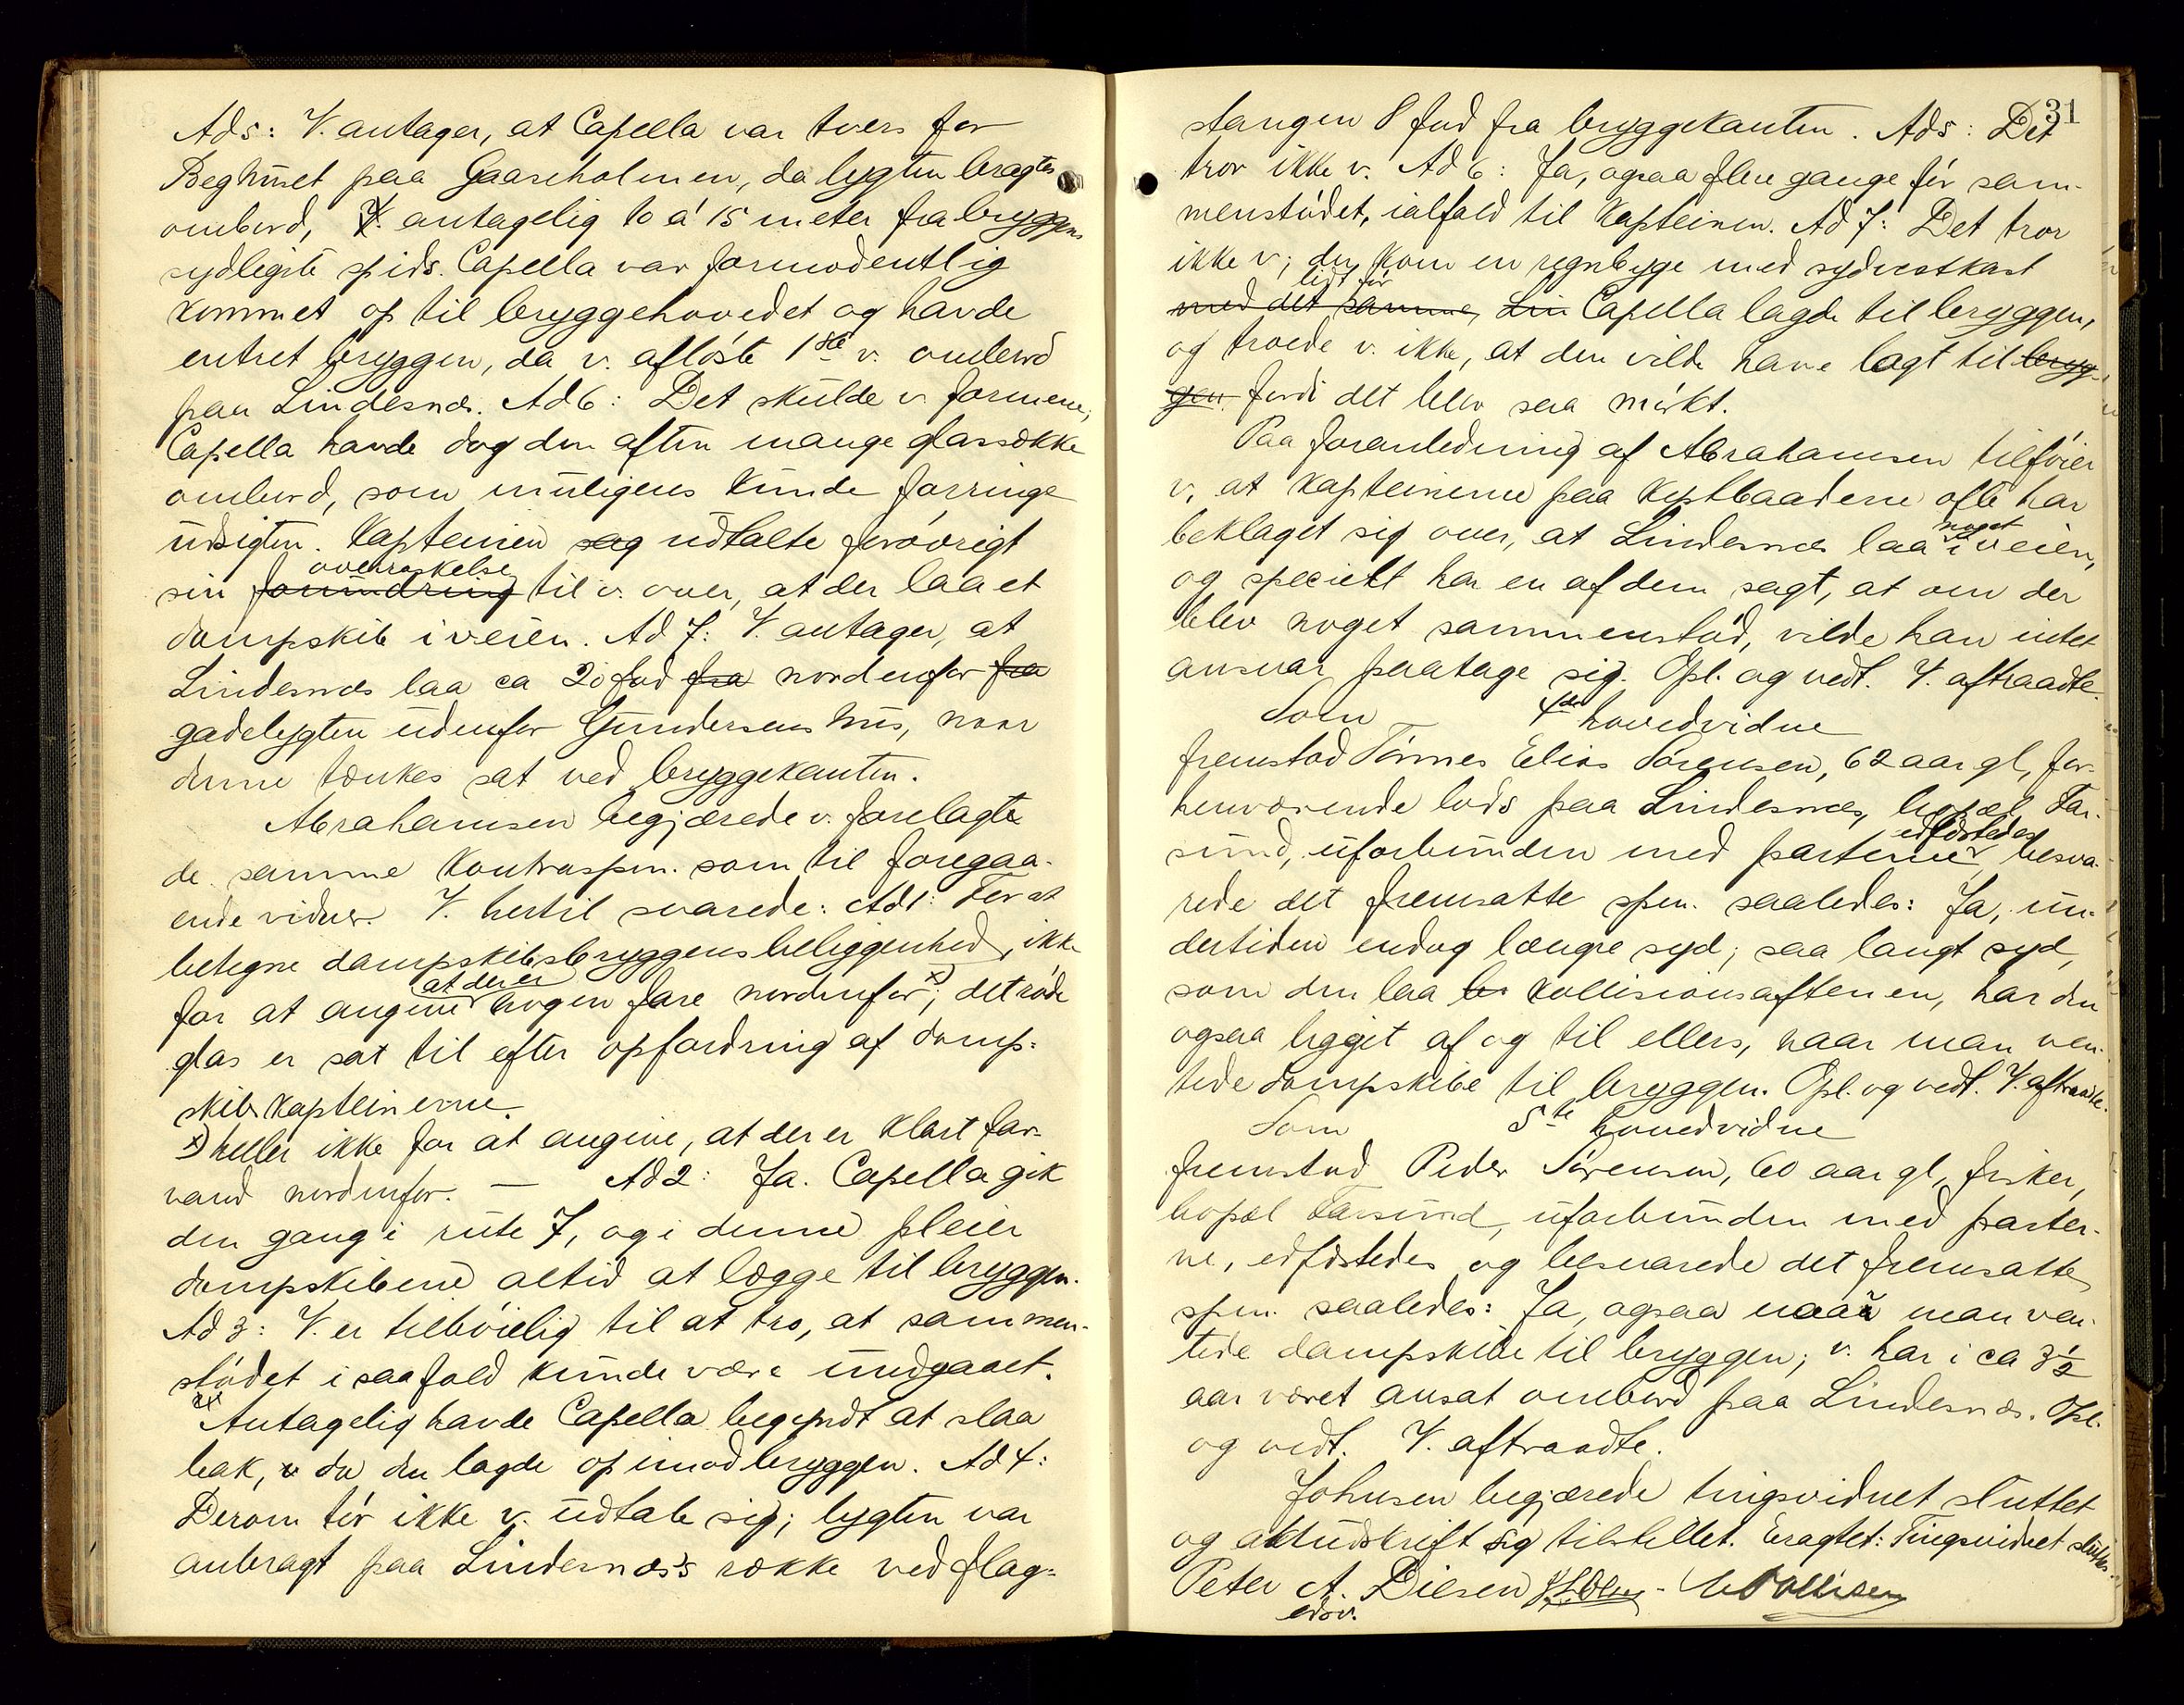 Ad 5: V. antager, at Capella var tvers for
Beghuset paa Gaaseholmen, da lygten bragtes
ombord, V. antagelig 10 á 15 meter fra bryggens
sydligste spids. Capella var formodentlig
kommet op til bryggehovedet og havde
entret bryggen, da v. afløste 1ste v. ombord
paa Lindesnæs. Ad 6: Det skulde v. formene,
Capella havde dog den aften mange glassække
ombord, som muligens kunde forringe
udsigten. Kapteinen sag udtalte forøvrigt
overraskelse
sin forundring til v. over, at der laa et
dampskib i veien. Ad 7: V. antager, at
Lindesnæs laa ca 20 fod fra nordenfor fra
gadelygten udenfor Gundersens hus, naar
denne tænkes sat ved bryggekanten.
Abrahamsen begjærede v. forelagte
de samme kontraspm. som til foregaa-
ende vidner. V. hertil svarede: Ad 1: For at
betegne dampskibsbryggens beliggenhed, ikke
at der er
for at angive nogen fare nordenfor x); det røde
glas er sat til efter opfordring af damp-
skibskapteinerne.
x) heller ikke for at angive, at der er klart far-
vand nordenfor. — Ad 2: Ja. Capella gik
den gang i rute 7, og i denne pleier
dampskibene altid at lægge til bryggen.
Ad 3: V. er tilbøielig til at tro, at sammen-
stødet i saafald kunde være undgaaet.
Antagelig havde Capella begyndt at slaa
bak, v da den lagde op imod bryggen. Ad 4:
Derom tør ikke v. udtale sig; lygten var
anbragt paa Lindesnæs's række ved flag-
31
stangen 8 fod fra bryggekanten. Ad 5: Det
tror ikke v. Ad 6: Ja, ogsaa flere gange før sam-
menstødet, ialfald til kapteinen. Ad 7: Det tror
ikke v; der kom en regnbyge med sydvestkast
lidt før
med det samme, Lin Capella lagde til bryggen,
og troede v. ikke, at den vilde have lagt til bryg-
gen fordi det blev saa mørkt.
Paa foranledning af Abrahamsen tilføier
v. at kapteinerne paa kystbaadene ofte har
noget
beklaget sig over, at Lindesnæs laa i veien,
og specielt har en af dem sagt, at om der
blev noget sammenstød, vilde han intet
ansvar paatage sig. Opl. og vedt. V. aftraadte.
Som 4de hovedvidne
fremstod Tønnes Elias Sørensen, 62 aar gl, for-
henværende lods paa Lindesnæs, bopæl Far-
edfæstedes
sund, uforbunden med parterne, besva-
rede det fremsatte spm. saaledes: Ja, un-
dertiden endog længre syd; saa langt syd,
som den laa kollisionsaftenen, har den
ogsaa ligget af og til ellers, naar man ven-
tede dampskibe til bryggen. Opl. og vedt. V. aftraadte.
Som 5te hovedvidne
fremstod Peder Sørensen, 60 aar gl, fisker,
bopæl Farsund, uforbunden med parter-
ne, edfæstedes og besvarede det fremsatte
spm. saaledes: Ja, ogsaa naar man ven-
tede dampskibe til bryggen; v. har i ca 3½
aar været ansat ombord paa Lindesnæs. Opl.
og vedt. V. aftraadte.
Johnsen begjærede tingsvidnet sluttet
og aktudskrift sig tilstillet. Eragtet: Tingsvidnet sluttes.
Peter A. Diesen
edsv.